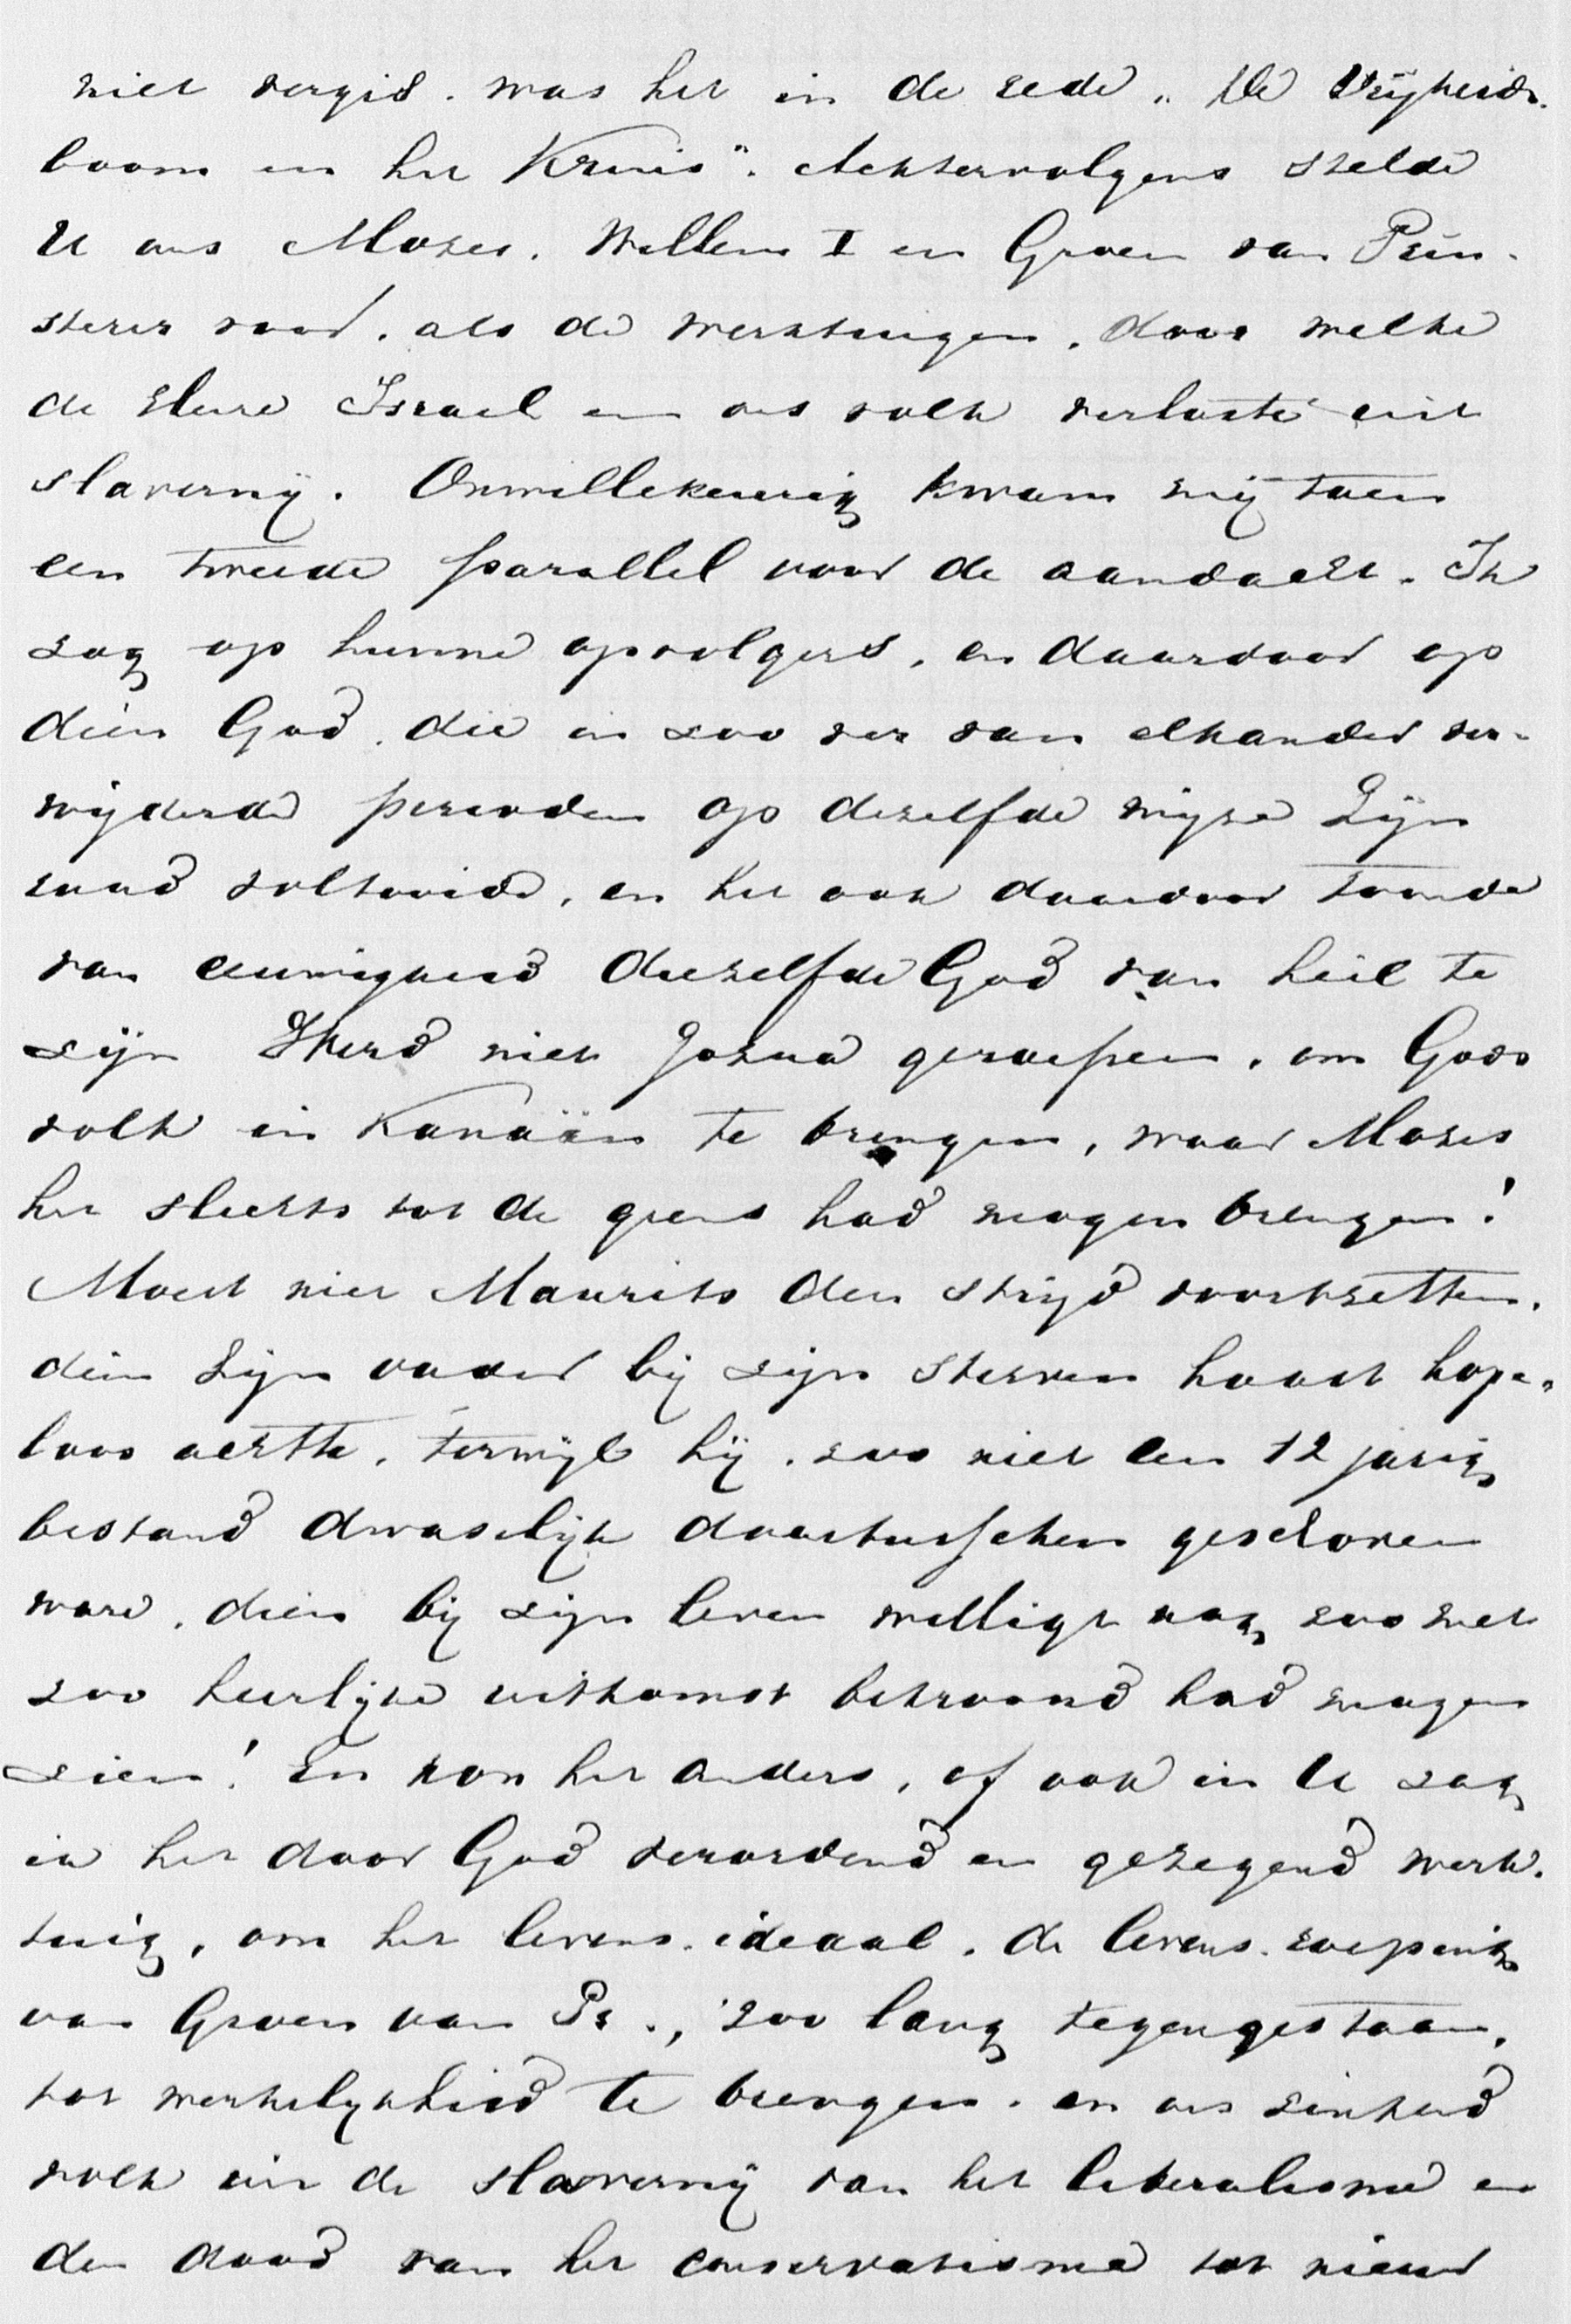 niet vergis. was het in de rede „De Vrijheids-
boom en het Kruis". Achtervolgens stelde
U ons Mozes, Willem I en Groen van Prin-
sterer voor, als de werktuigen, door welke
de Heere Israel en ons volk verloste uit
slavernij. Onwillekeurig kwam mij toen
een tweede parallel voor de aandacht. Ik
zag op hunne opvolgers, en daardoor op
dien God, die in zoo ver van elkander ver-
wijderde perioden op dezelfde wijze Zijn
raad voltooide, en het ook daardoor toonde
van eeuwigheid diezelfde God van heil te
zijn Werd niet Jozua geroepen, om Gods
volk in Kanaän te brengen, waar Mozes
het slechts tot de grens had mogen brengen!
Moest niet Maurits den strijd voortzetten,
dien Zijn vader bij zijn sterven haast hope-
loos achtte, terwijl hij, zoo niet een 12 jarig
bestand dwaselijk daartusschen geschoven
ware, dien bij zijn leven welligt nog zoo met
zoo heerlijke uitkomst bekroond had mogen
zien! En kon het anders, of ook in U zag
ik het door God verordend en gezegend werk-
tuig, om het levens-ideaal, de levens-roeping
van Groen van Pr., zoo lang tegengestaan,
tot werkelijkheid te brengen. en ons zinkend
volk uit de slavernij van het liberalisme en
den dood van het conservatisme tot nieuw